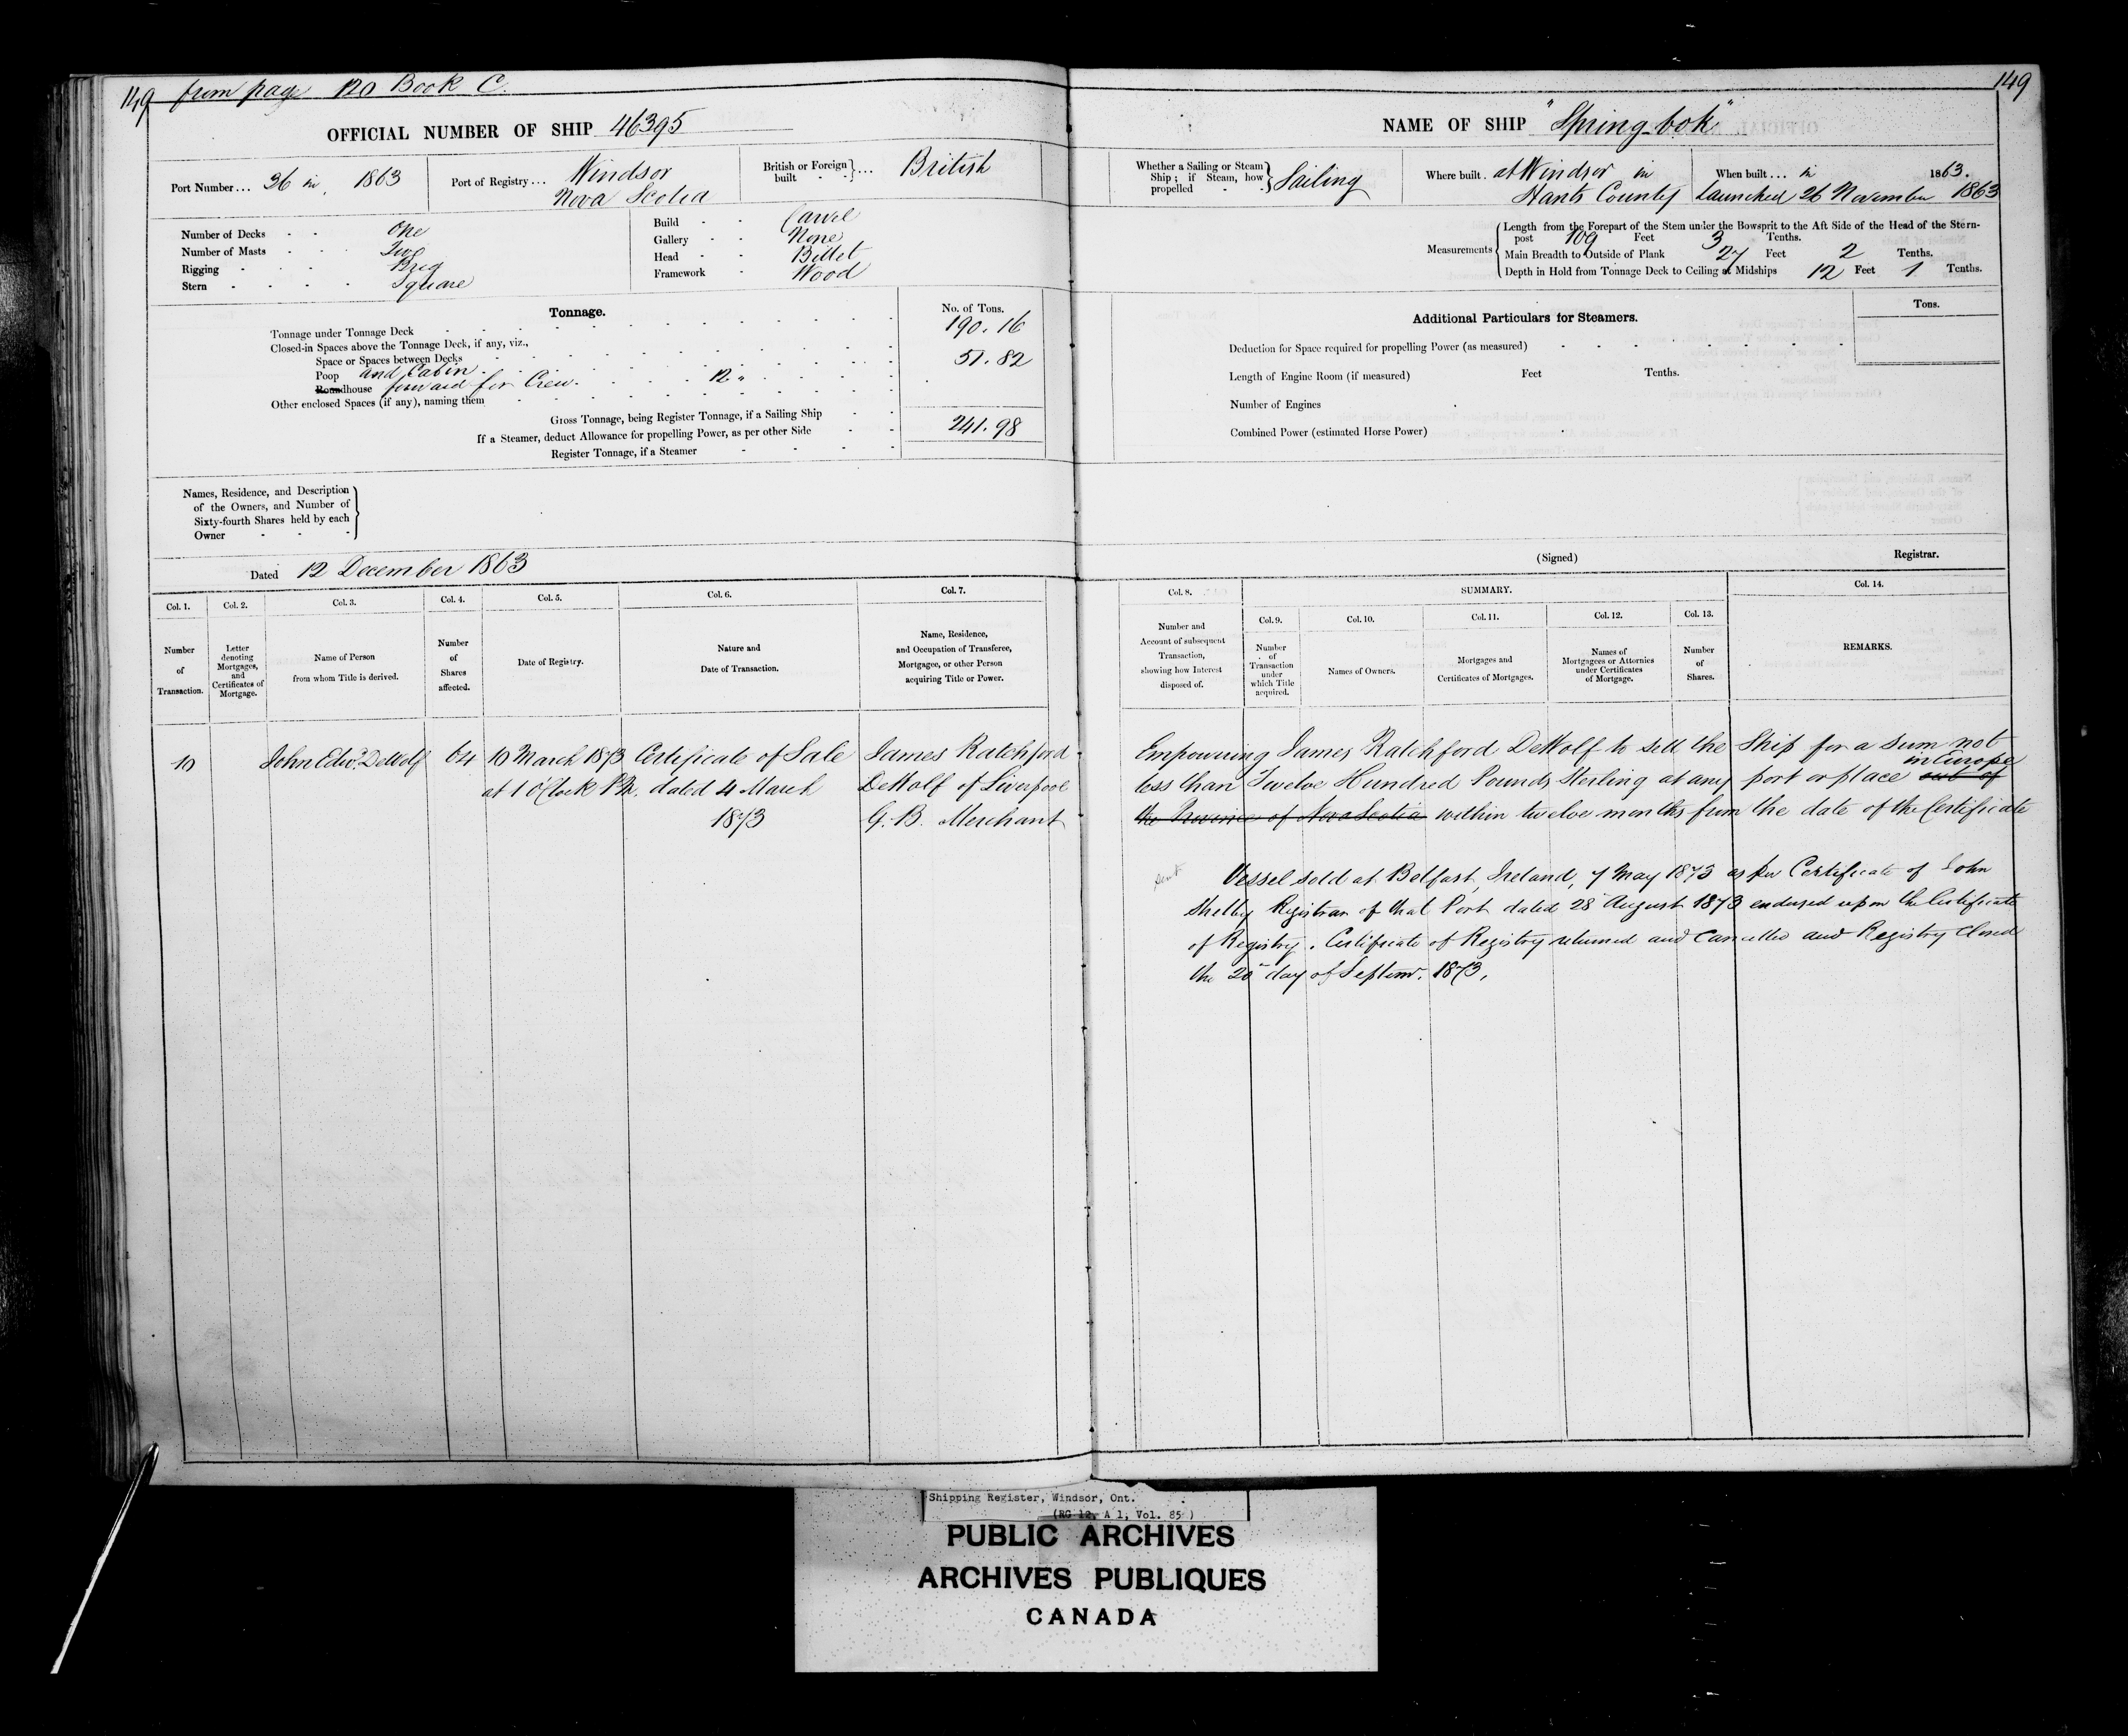 149 from page 120 Book C.
OFFICIAL NUMBER OF SHIP 46395
Port Number... 36 in, 1863
Port of Registry... Windsor
Nova Scotia
British or Foreign built } ... British
Number of Decks One
Number of Masts Two
Rigging Brig
Stern Square
Build Carvel
Gallery None
Head Billet
Framework Wood
Tonnage.
No. of Tons.
Tonnage under Tonnage Deck 190.16
Closed-in Spaces above the Tonnage Deck, if any, viz.,
Space or Spaces between Decks 51.82
Poop and Cabin
Roundhouse forward for Crew. 12 "
Other enclosed Spaces (if any), naming them
Gross Tonnage, being Register Tonnage, if a Sailing Ship 241.98
If a Steamer, deduct Allowance for propelling Power, as per other Side
Register Tonnage, if a Steamer
Names, Residence, and Description
of the Owners, and Number of
Sixty-fourth Shares held by each
Owner
Dated 12 December 1863
Col. 1. Col. 2. Col. 3. Col. 4. Col. 5. Col. 6. Col. 7.
Number of Transaction.
Letter denoting Mortgages, and Certificates of Mortgage.
Name of Person from whom Title is derived.
Number of Shares affected.
Date of Registry.
Nature and Date of Transaction.
Name, Residence, and Occupation of Transferee, Mortgagee, or other Person acquiring Title or Power.
10 John Edwd. DeWolf 64 10 March 1873 Certificate of Sale James Ratchford
at 1 O'Clock P.M. dated 4 March DeWolf of Liverpool
1873 G. B. Merchant
149
NAME OF SHIP "Spring-bok"
Whether a Sailing or Steam Ship; if Steam, how propelled } Sailing
Where built. at Windsor in
Hants County
When built ... in 1863.
Launched 26 November 1863
Measurements
Length from the Forepart of the Stem under the Bowsprit to the Aft Side of the Head of the Stern-
post 109 Feet 3 Tenths.
Main Breadth to Outside of Plank 27 Feet 2 Tenths.
Depth in Hold from Tonnage Deck to Ceiling at Midships 12 Feet 1 Tenths.
Additional Particulars for Steamers.
Tons.
Deduction for Space required for propelling Power (as measured)
Length of Engine Room (if measured) Feet Tenths.
Number of Engines
Combined Power (estimated Horse Power)
(Signed) Registrar.
Col. 8. SUMMARY. Col. 14.
Col. 9. Col. 10. Col. 11. Col. 12. Col. 13.
Number and Account of subsequent Transaction, showing how Interest disposed of.
Number of Transaction under which Title acquired.
Names of Owners.
Mortgages and Certificates of Mortgages.
Names of Mortgagees or Attornies under Certificates of Mortgage.
Number of Shares.
REMARKS.
Empowering James Ratchford DeWolf to sell the Ship for a sum not
less than Twelve Hundred Pounds Sterling at any port or place out of in Europe
the Province of Nova Scotia within twelve months from the date of the Certificate
sent
Vessel sold at Belfast, Ireland, 7 May 1873 as per Certificate of John
Shelby Registrar of that Port dated 28 August 1873 endorsed upon the Certificate
of Registry. Certificate of Registry returned and cancelled and Registry closed
the 20 day of Septemr. 1873.
Shipping Register, Windsor, Ont.
(RG 12, A 1, Vol. 85)
PUBLIC ARCHIVES
ARCHIVES PUBLIQUES
CANADA